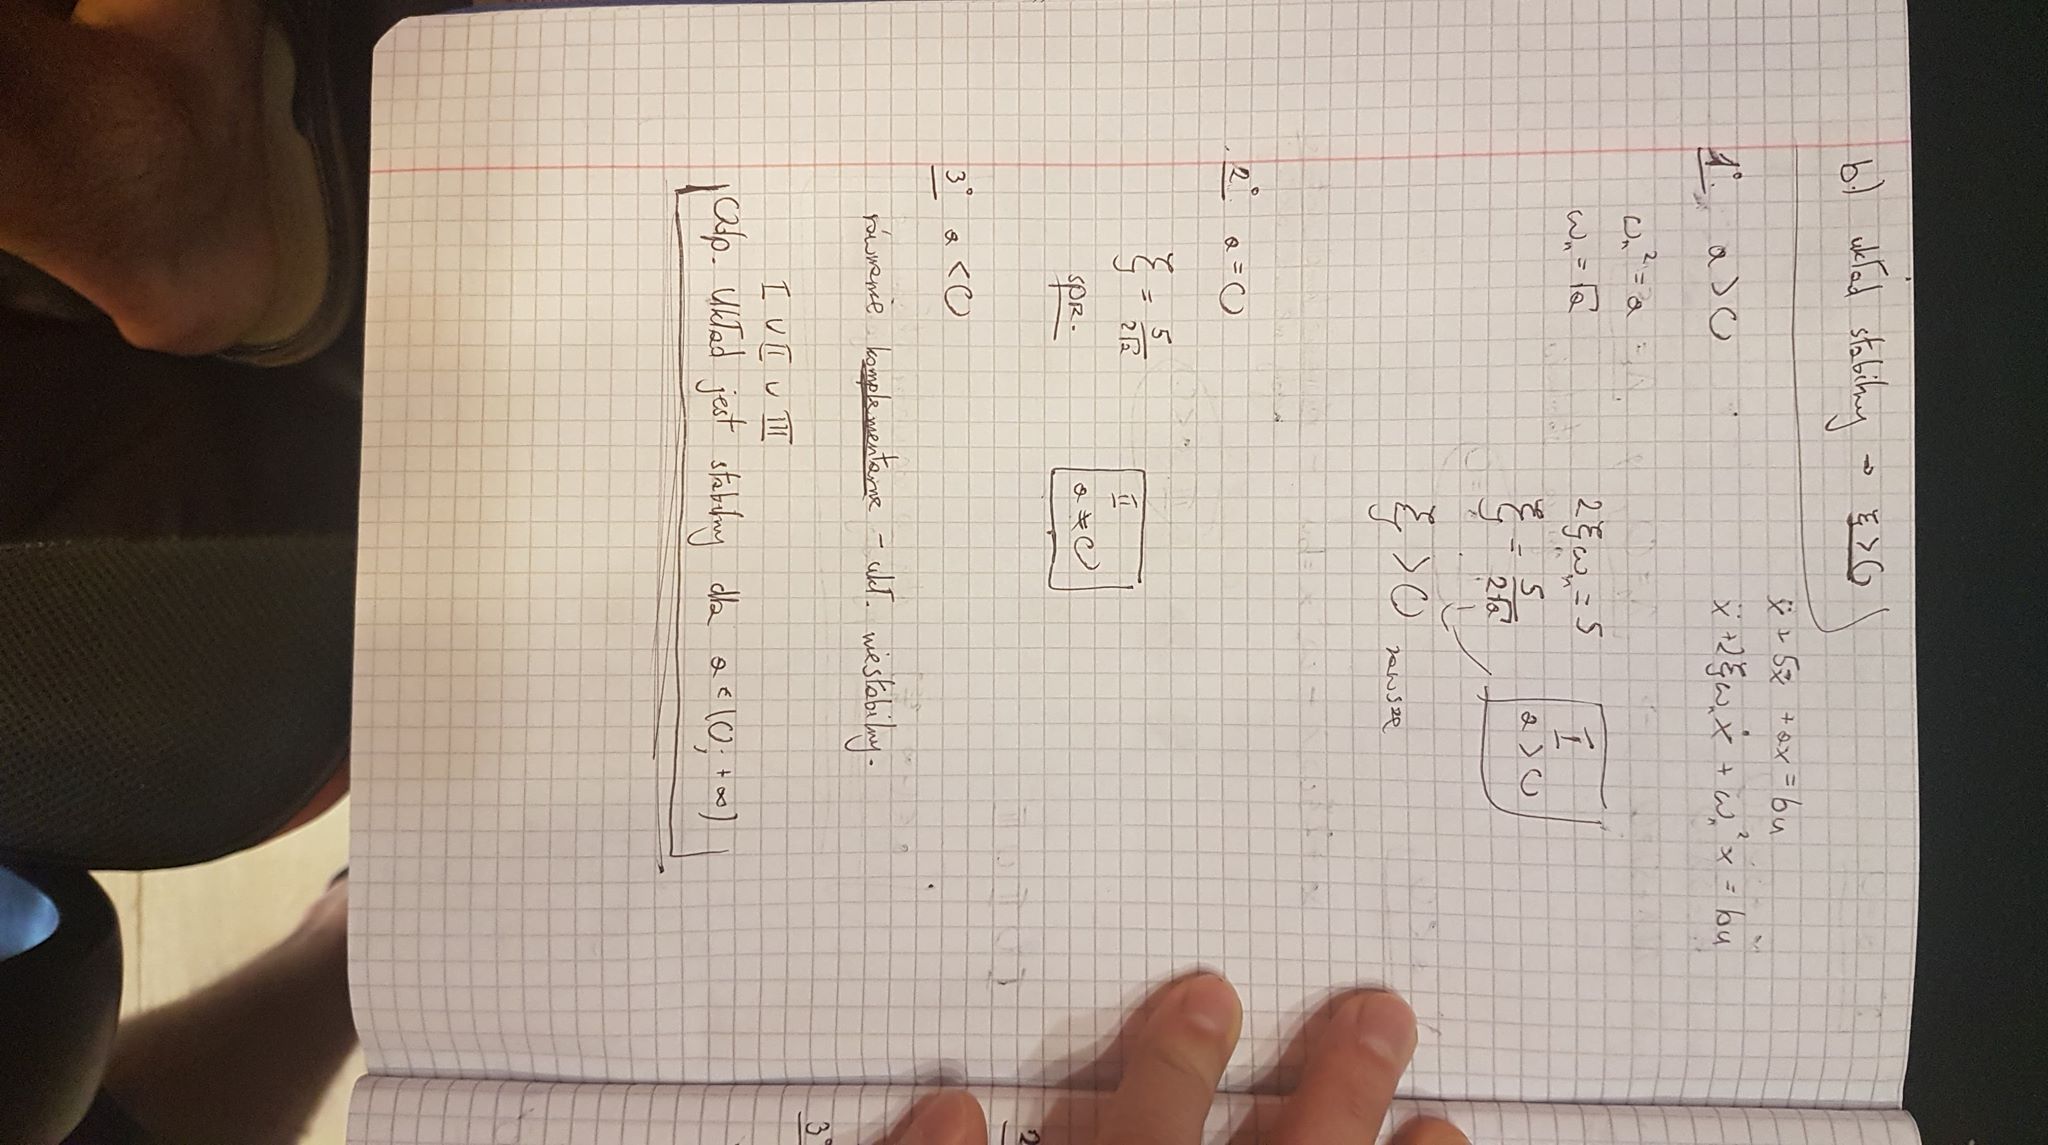 b.) układ stabilny → ξ > 0
ẍ + 5ẋ + ax = bu
1°. a > 0
ẍ + 2ξωₙẋ + ωₙ²x = bu
ωₙ² = a
ωₙ = √a
2ξωₙ = 5
I
a > 0
ξ = 5/(2√a)
ξ > 0 zawsze
2°. a = 0
ξ = 5/(2√a)
II
a ≠ 0
spr.
3° a < 0
równanie komplementarne - ukł. niestabilny.
I ∪ II ∪ III
Odp. Układ jest stabilny dla a ∈ (0; +∞)
2
3°